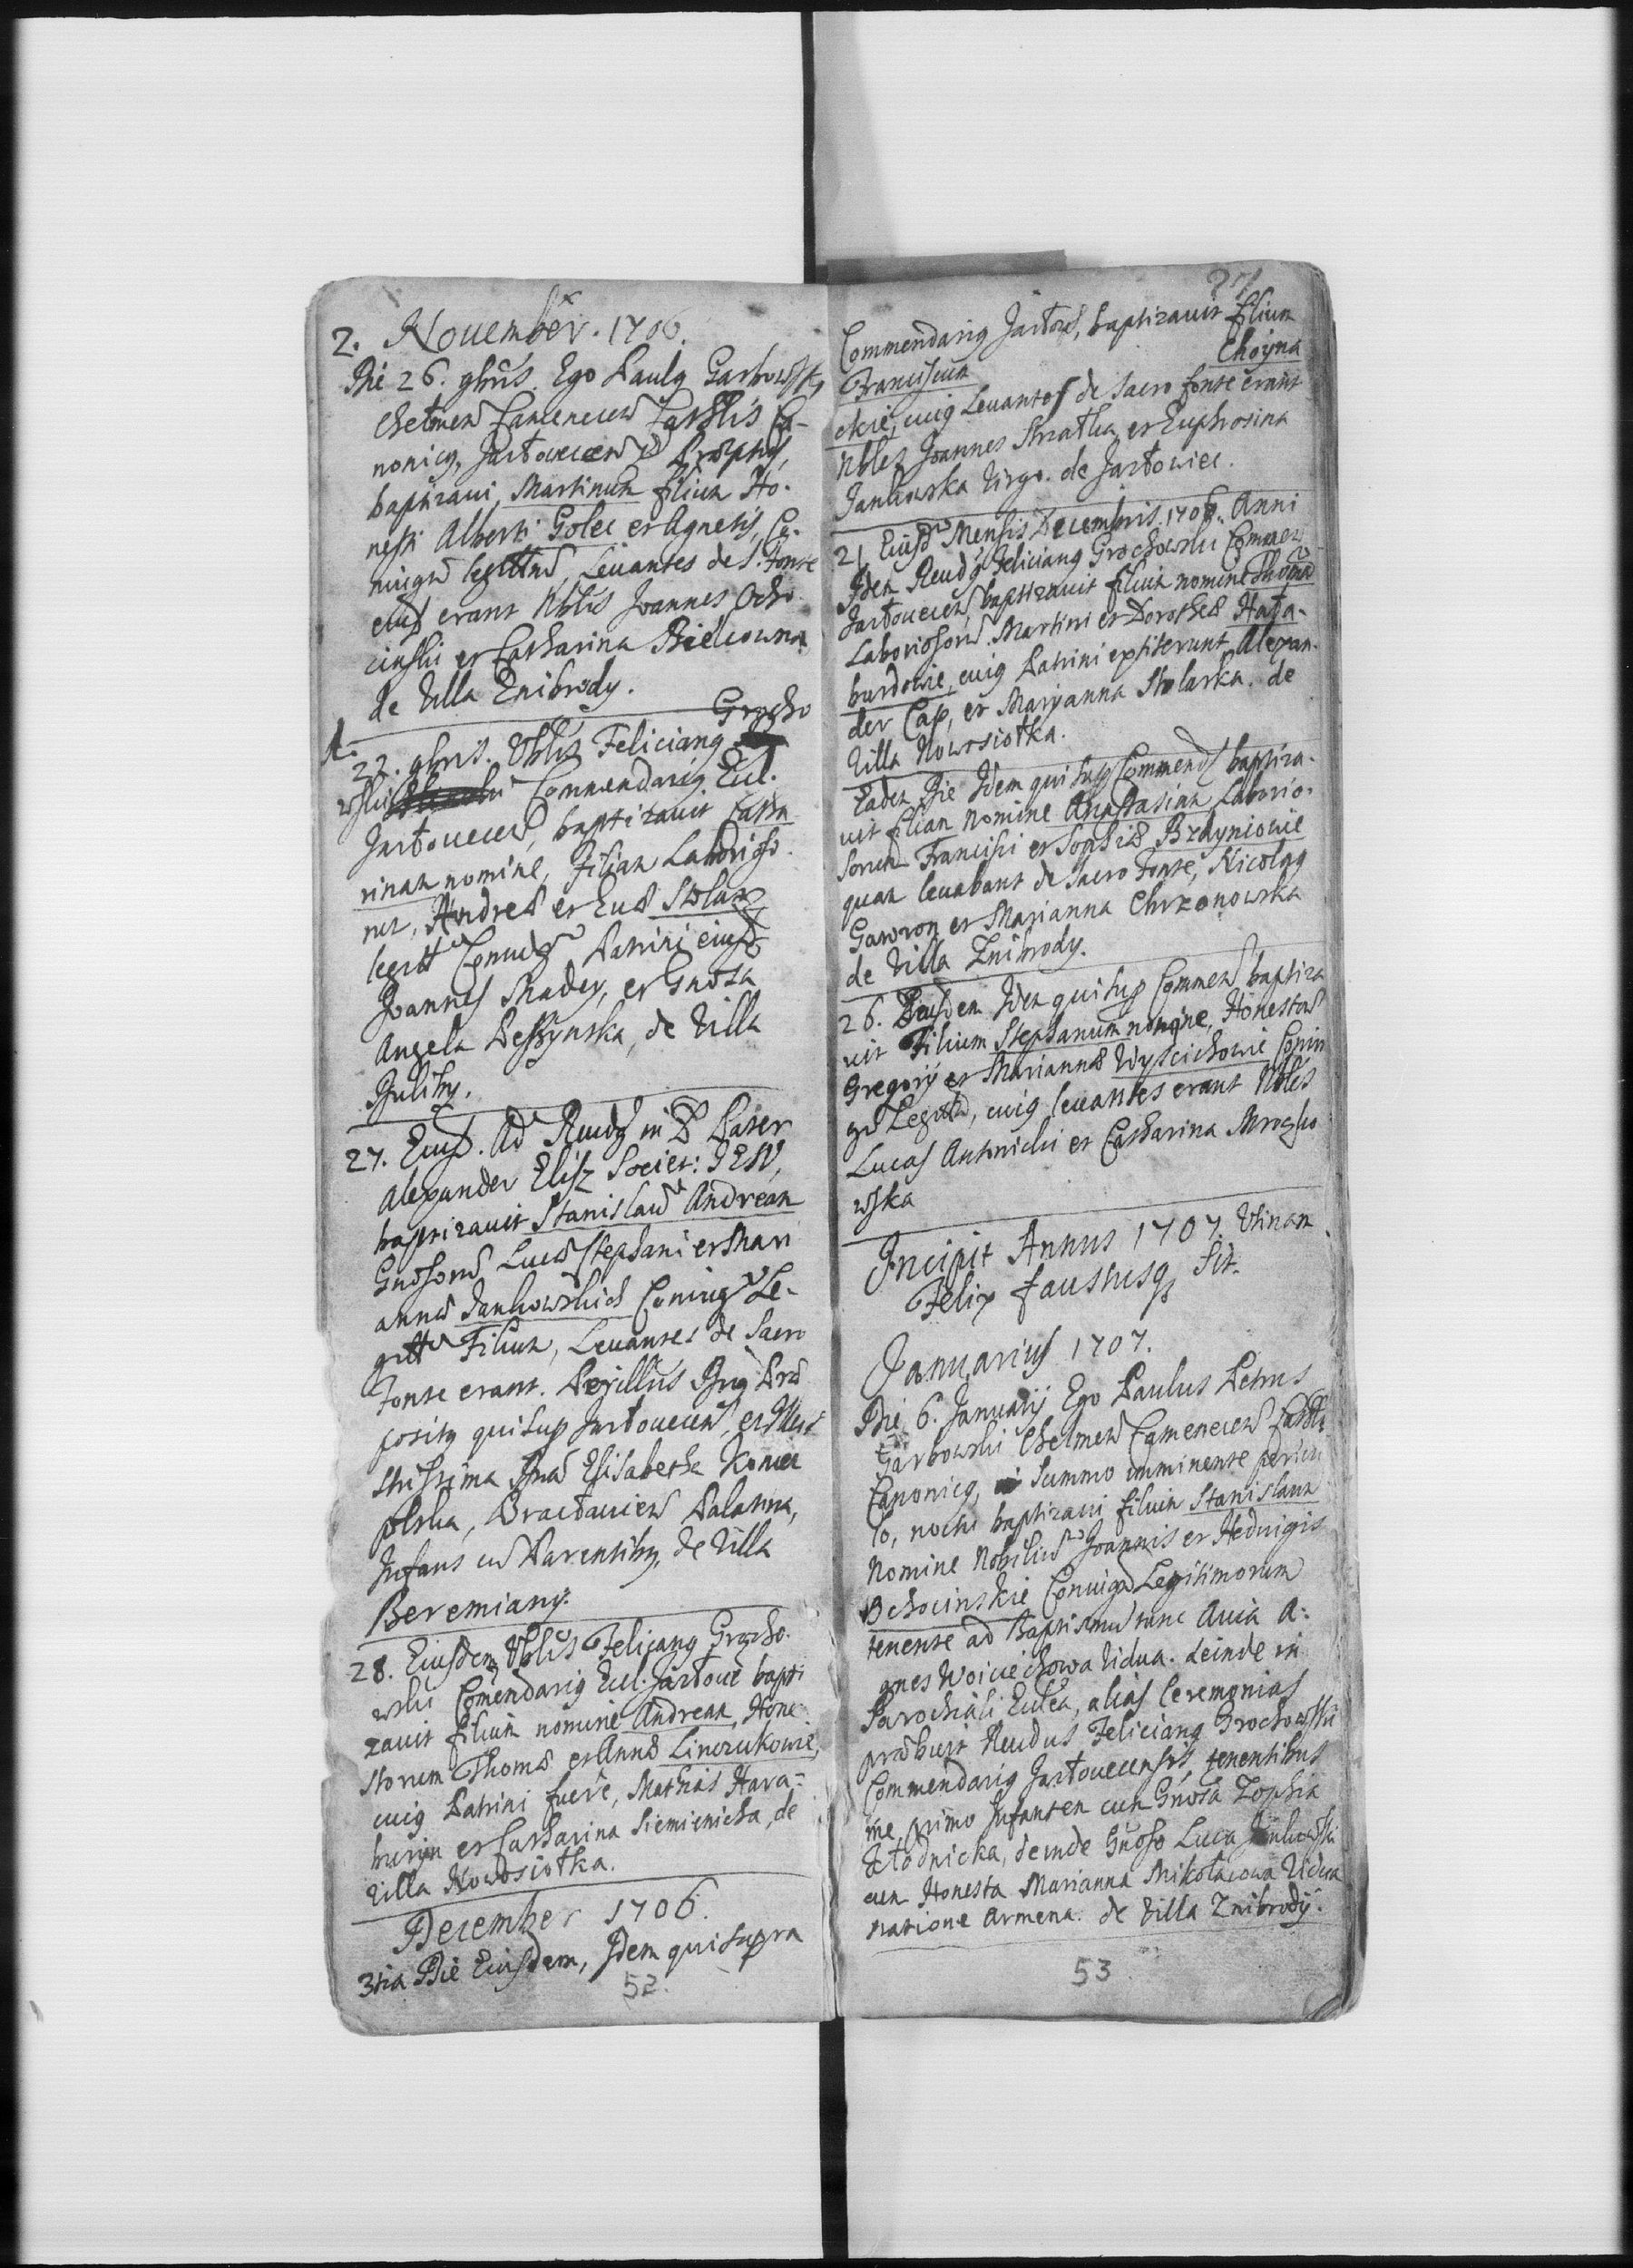 2. November. 1706.
Die 26. 9bris. Ego Paulg Garbowski,
Chelmen Camenecen Cathlis Ca-
nonicg, Jazłovecen Præptg,
baptizavi, Martinum filium Ho-
nesti Alberti Golec et Agnetis, Co-
niugu legittm, Levantes de S. Fonte
eius erant Nblis Joannes Ocho
cinski et Catharina Bielcowna
de Villa Znibrody.
A. Grocho
22. 9bris. Vblis Feliciang
wski Commendarig Eccl.
Jazłovecen, baptizavit Catha
rinam nomine, Filiam Laborioso
rum, Andreæ et Evæ Stolarz
legitt Coniug Patrini eiusd
Joannes Madey, et Gnosa
Angela Deszynska, de Villa
Duliby.
27. Eiusd. Ad Rendg in X Pater
Alexander Elisz Societ: JESV,
baptizavit Stanislau Andream
Gnosoru Lucæ Stephani et Mari
annæ Jankowskich Coniug Le-
gitt Filium, Levantes de Sacro
Fonte erant. Perillus Dng Præ
positg qui sup Jazłovecen, et Illus
strissima Dna Elisabetha Koniec
polska, Bracłavien Palatina,
Infans cu Parentibg, de Villa
Beremiany.
28. Eiusdem Vblis Felicang Grocho-
wski Comendarig Eccl. Jazłovec bapti
zavit filium nomine Andream, Hone
storum Thomæ et Annæ Linczukowie,
cuig Patrini fuere, Mathias Hara-
buryn et Catharina Siemienicha, de
Villa Nowosiołka.
December 1706.
3tia Die Eiusdem, Idem qui supra
52.
27
Commendarig Jazłovec, baptizavit filium
Franciscum Choyna
ckie, cuig Levantes de Sacro fonte erant
Nbles Joannes Strzałka et Euphrosina
Jankowska Virgo. de Jazłowiec.
21 Eiusd Mensis Decembris 1706. Anni
Idem Rendg Feliciang Grochowski Commen
Jazłovecen, baptizavit filium nomine Thoma
Laboriosoru Martini et Dorotheæ Hała-
burdowie, cuig Patrini extiterunt Alexan-
der Cap, et Maryanna Stolarka. de
Villa Nowosiołka.
Eadem Die Idem qui sup Commend baptiza-
vit filiam nomine Anastasiam Laborio-
sorum Francisci et Sophiæ Brdyniowie
quam levabant de Sacro Fonte, Nicolag
Gawron et Marianna Chrzonowska
de Villa Znibrody.
26. Eiusdem Idem qui sup Commen baptiza
vit Filium Stephanum nomine, Honestoru
Gregorij et Mariannæ Wyscichowie Coniu
gu Legittm, cuig levantes erant Nbles
Lucas Antonicki et Catharina Mrozko
wska
Incipit Annus 1707. Utinam
Felix faustusq Sit.
Januarius 1707.
Die 6. Januarij Ego Paulus Petrus
Garbowski Chelmen Camenecen Cathlis
Canonicg, Summo imminente pericu
lo, noctu baptizavi filium Stanislaum
Nomine Nobiliu Joannis et Hedvigis
Ochocinskie Coniugu Legitimorum
tenente ad Baptismu tunc Avia A-
gnes Woiciechowa Vidua. deinde in
Parochiali Ecclea, alias Ceremonias
præbuit Rendus Feliciang Grochowski
Commendarig Jazłovecensis, tenentibus
me, primo Infantem cum Gnosa Zophia
Kłodnicka, deinde Gnoso Luca Jankowski
cum Honesta Marianna Mikołaiowa Vidua
natione Armena. de Villa Znibrody.
53